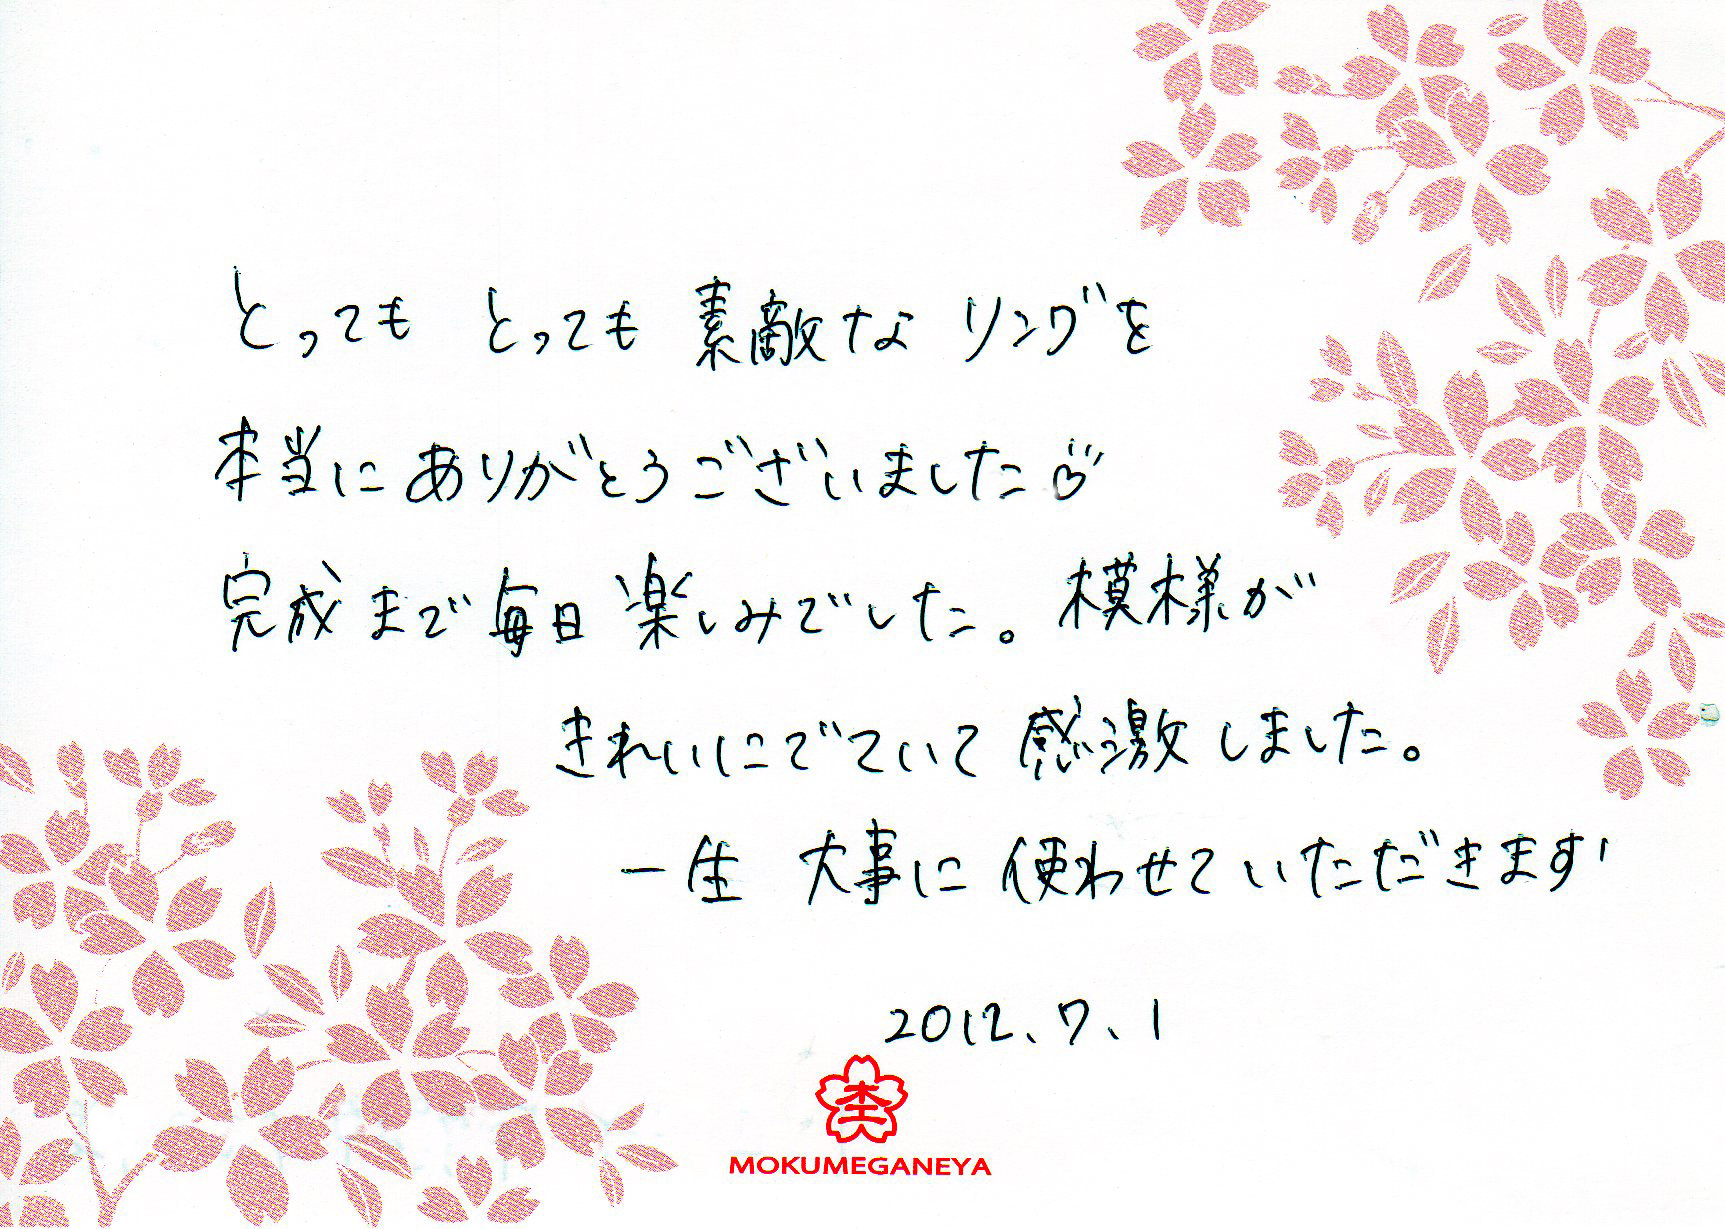 とっても とっても 素敵な リングを
本当に ありがとうございました♡
完成まで 毎日 楽しみでした。模様が
きれいにでていて 感激しました。
一生 大事に 使わせていただきます!
2012.7.1
MOKUMEGANEYA